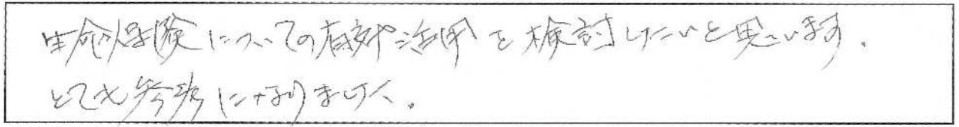 生命保険についての有効活用を検討したいと思います.
とても参考になりました。